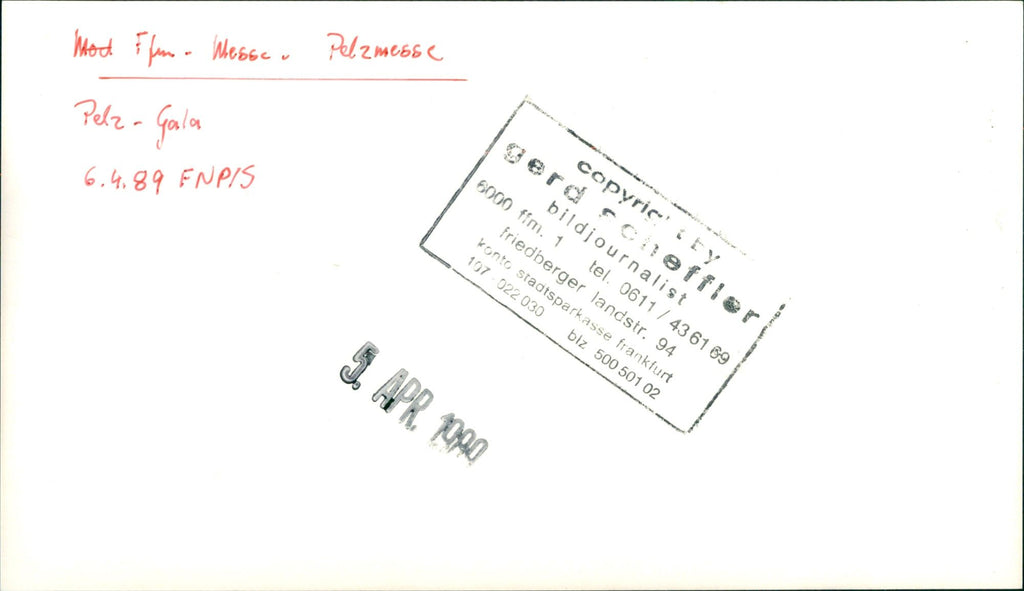 Mod Ffm - Messe - Pelzmesse
Pelz - Gala
6.4.89 FNP/S
copyright by
gerd scheffler
bildjournalist
6000 ffm. 1 tel. 0611 / 43 61 69
friedberger landstr. 94
konto stadtsparkasse frankfurt
107 - 022 030 blz. 500 501 02
5. APR. 1990